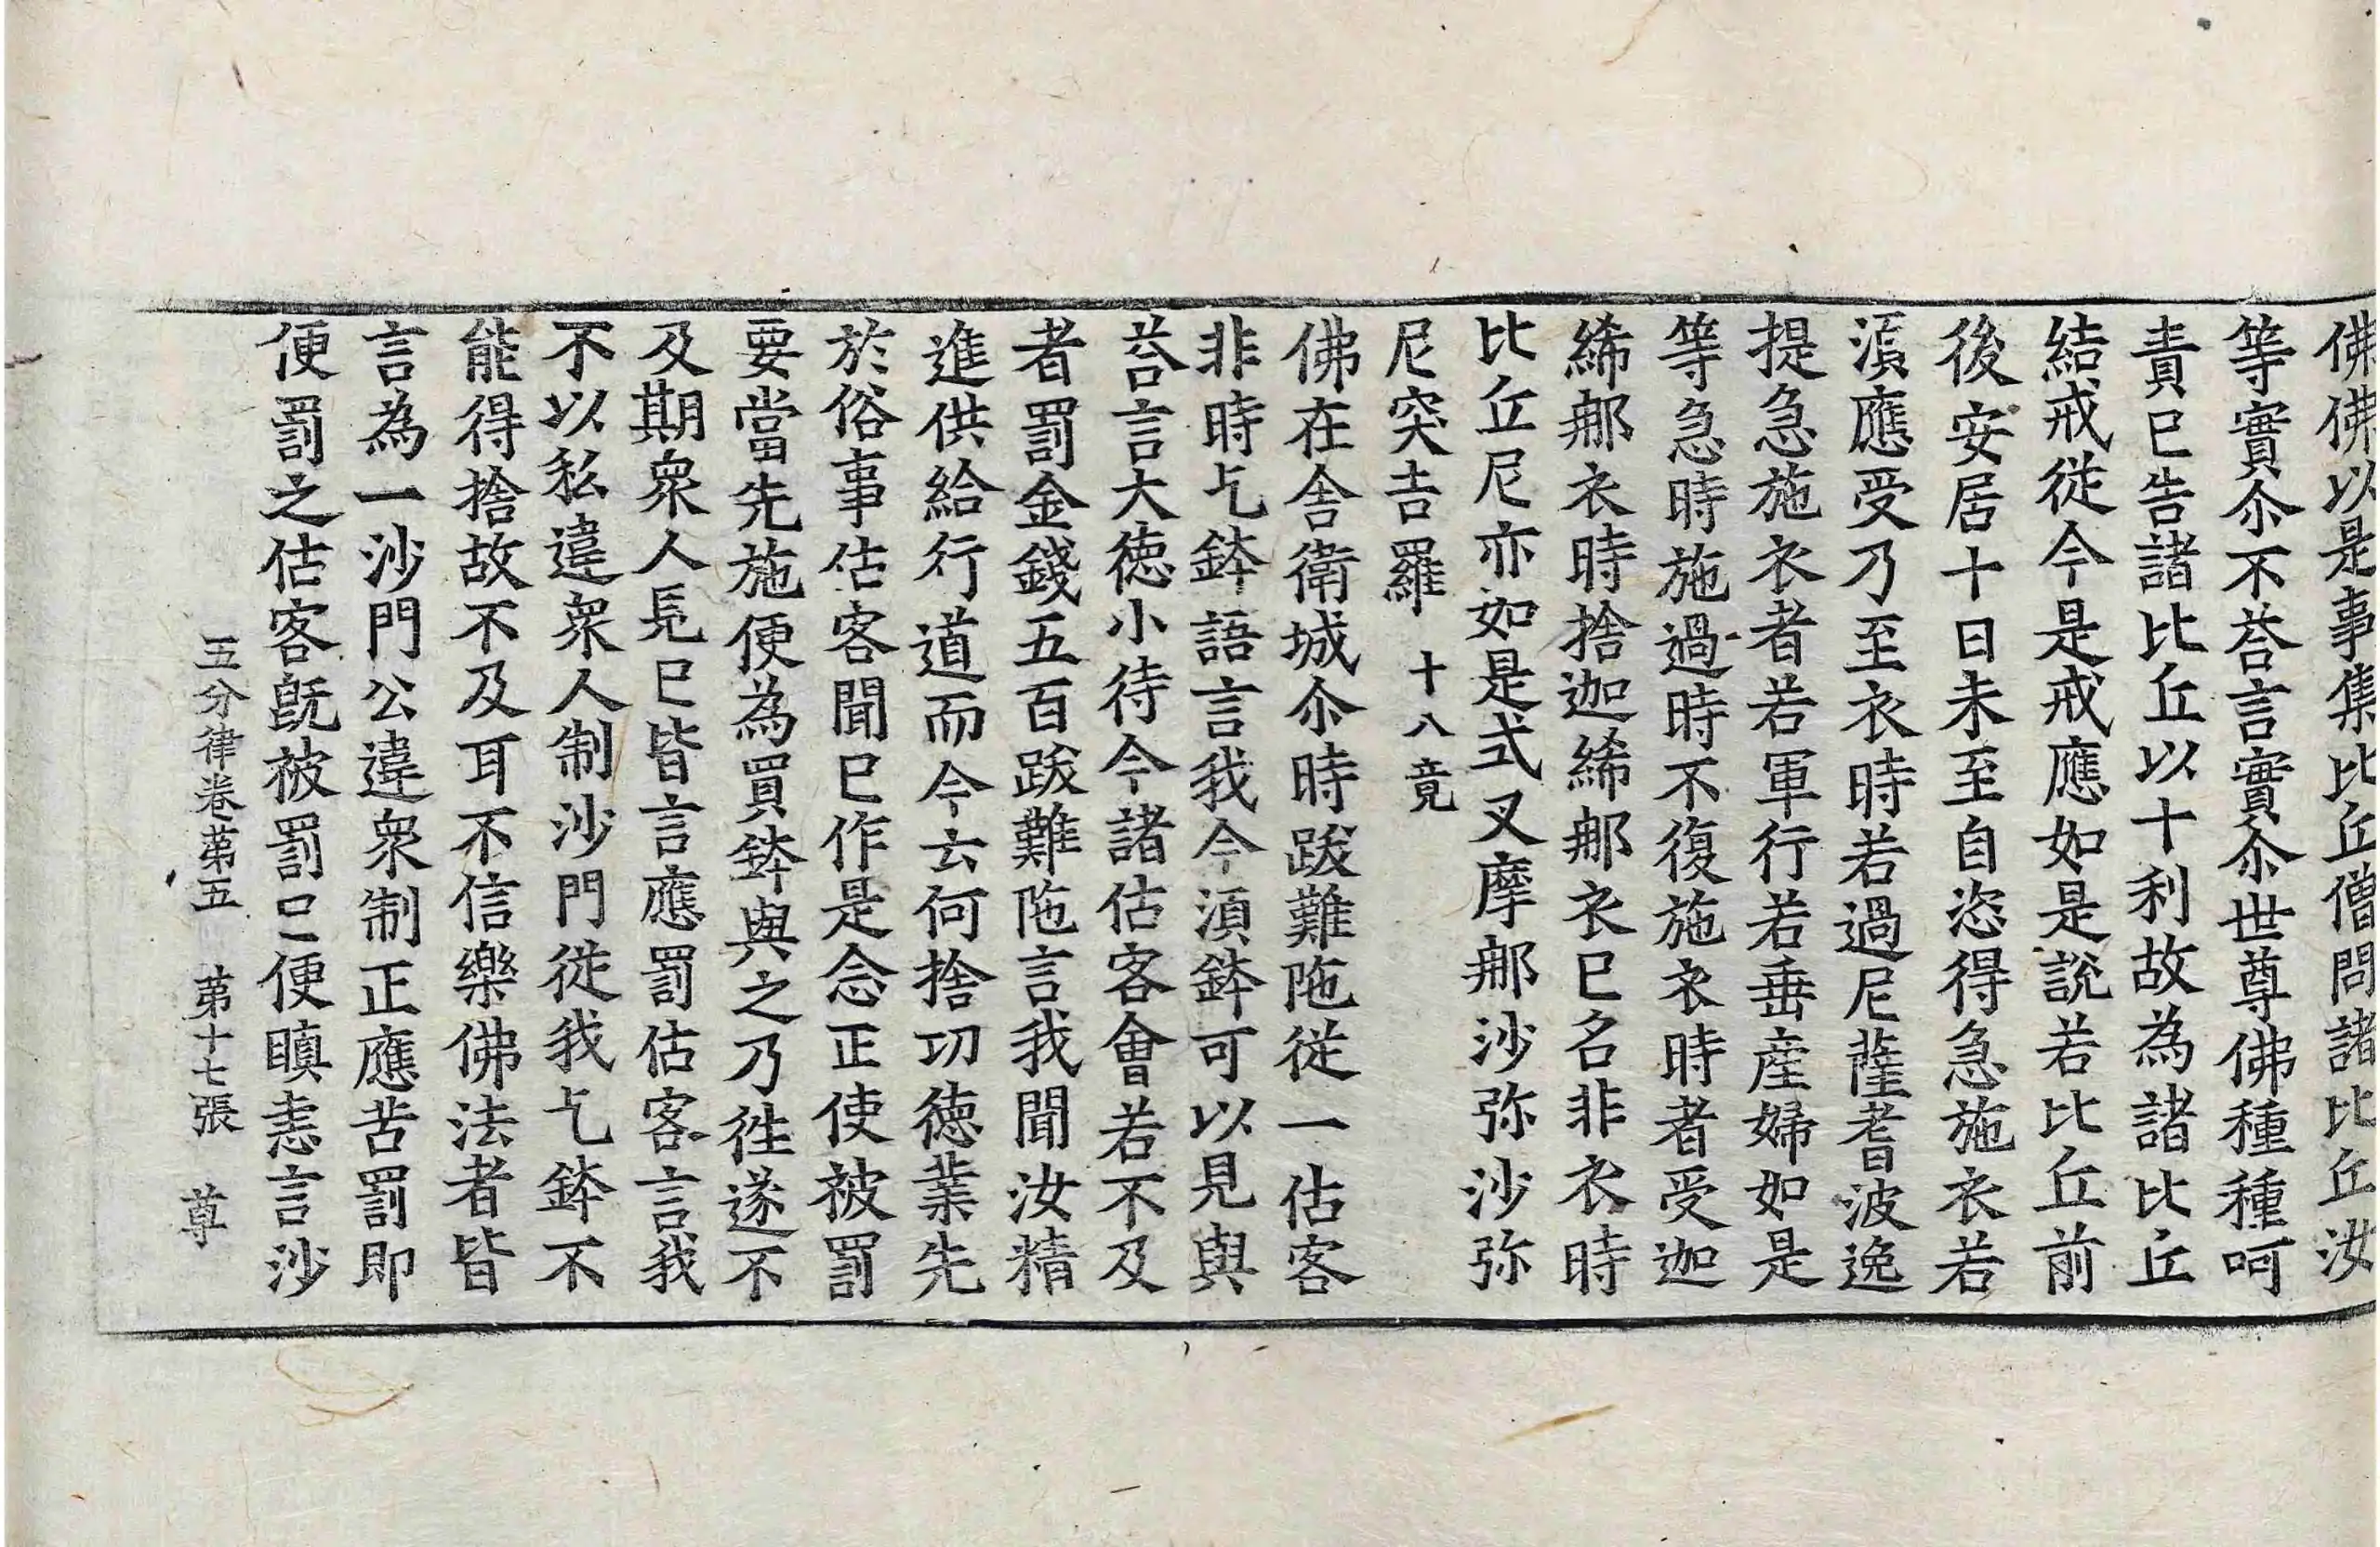 佛佛以是事集比丘僧問諸比丘汝
等實尒不荅言實尒世尊佛種種呵
責已告諸比丘以十利故為諸比丘
結戒從今是戒應如是說若比丘前
後安居十日未至自恣得急施衣若
湏應受乃至衣時若過尼薩耆波逸
提急施衣者若軍行若垂産婦如是
等急時施過時不復施衣時者受迦
絺郍衣時捨迦絺郍衣已名非衣時
比丘尼亦如是式叉摩郍沙弥沙弥
尼突吉羅 十八竟
佛在舍衛城尒時跋難陁從一估客
非時乞鉢語言我今湏鉢可以見與
荅言大徳小待今諸估客會若不及
者罰金錢五百跋難陁言我聞汝精
進供給行道而今云何捨功徳業先
於俗事估客聞已作是念正使被罰
要當先施便為買鉢與之乃徃遂不
及期衆人見已皆言應罰估客言我
不以私違衆人制沙門從我乞鉢不
能得捨故不及耳不信樂佛法者皆
言為一沙門公違衆制正應苦罰即
便罰之估客旣被罰已便瞋恚言沙
五分律卷第五 第十七張 尊